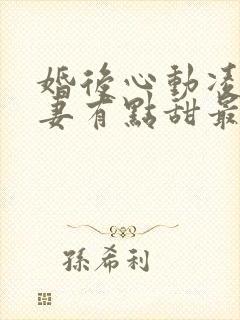 婚後心動凌
妻有點甜最
孫希利